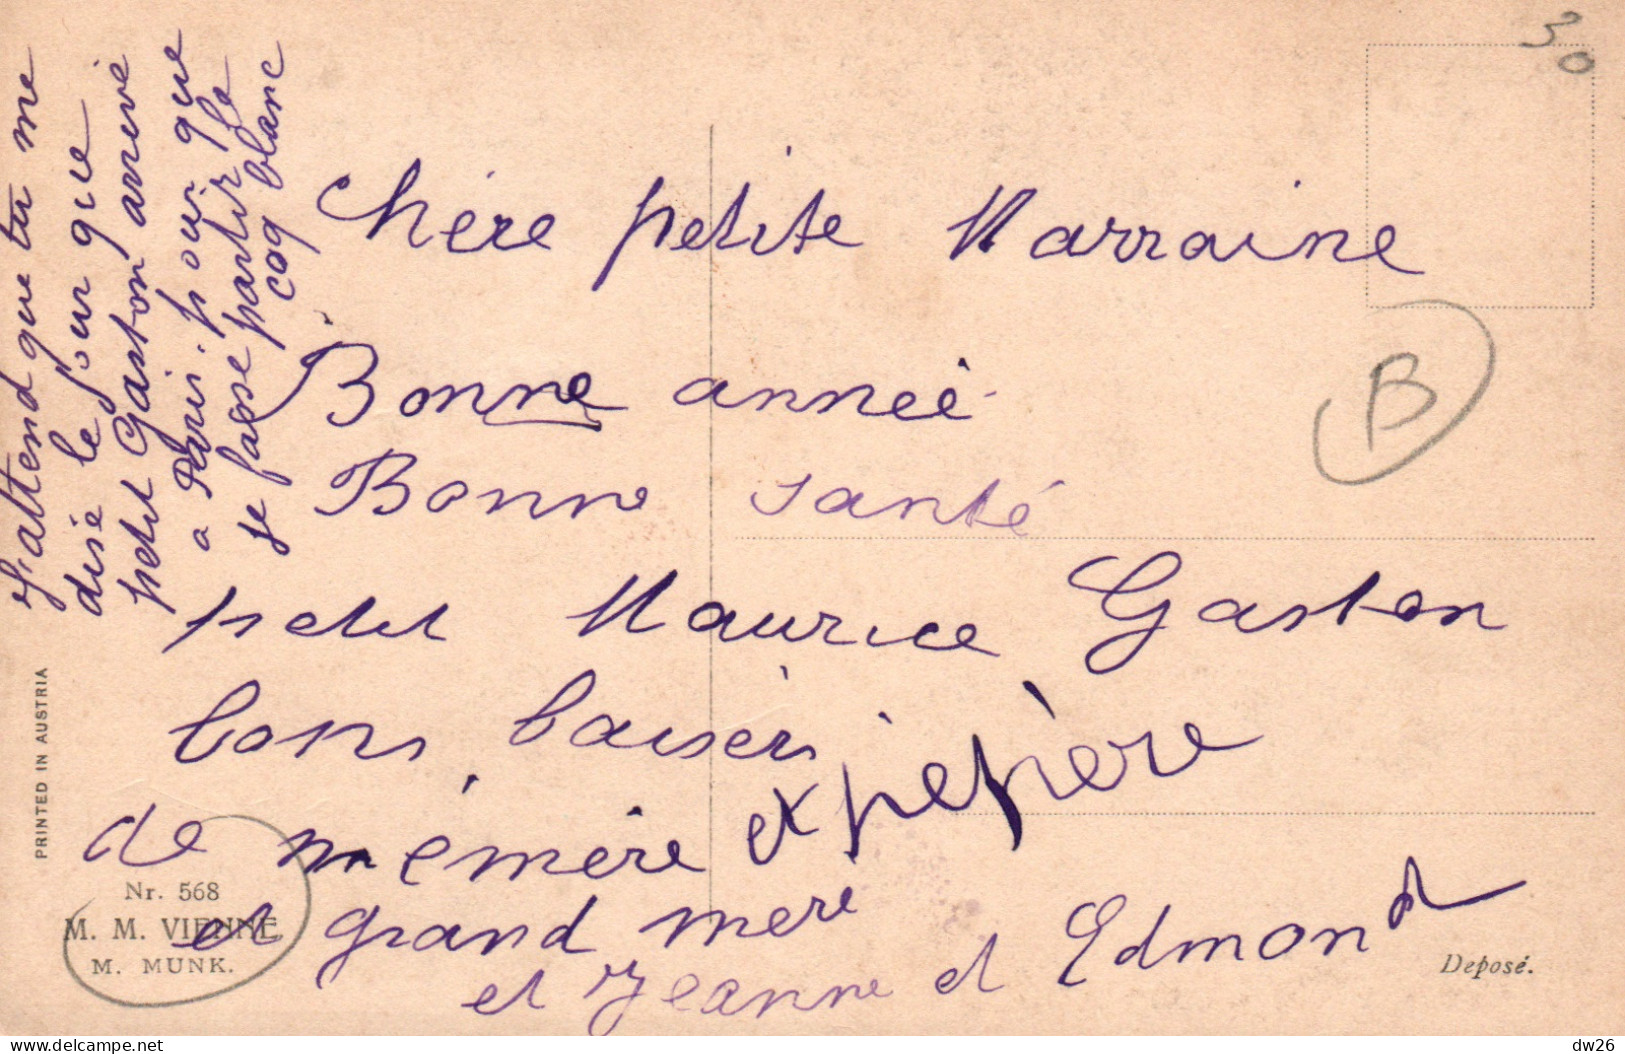 Chère petite Marraine
Bonne année
Bonne santé
petit Maurice Gaston
bons baisers
de mémère et pepère
et grand mere
et Jeanne et Edmond
J'attend que tu me
dise le jour que
petit Gaston arrive
a Paris. pour que
je fasse partir le
coq blanc
30
B
PRINTED IN AUSTRIA
Nr. 568
M. M. VIENNE
M. MUNK.
Deposé.
www.delcampe.net
dw26